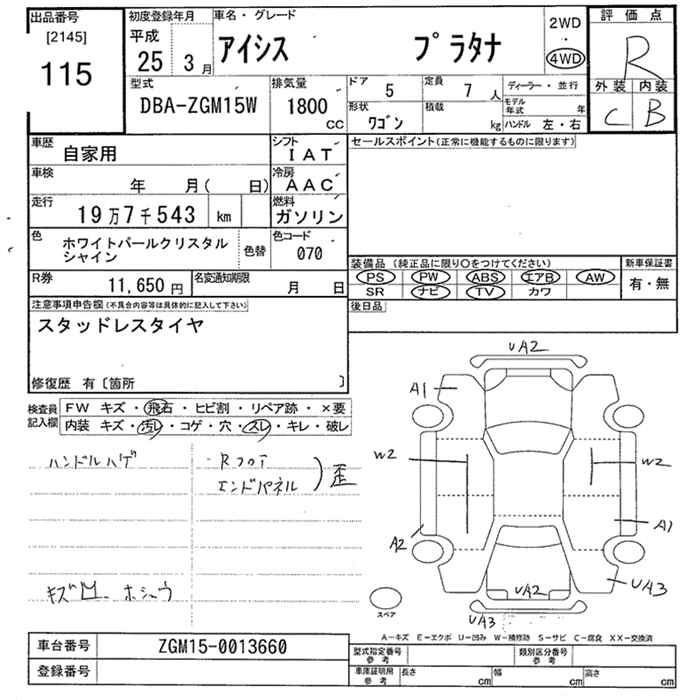 出品番号
[2145]
115
初度登録年月
平成
25 3 月
車名・グレード
アイシス プラタナ
2WD
・
4WD
評価点
R
外装 内装
C B
型式
DBA-ZGM15W
排気量
1800
CC
ドア
5
定員
7 人
形状
ワゴン
積載
kg
ディーラー・並行
モデル年式 年
ハンドル 左・右
車歴
自家用
シフト
IAT
車検
年 月( 日)
冷房
AAC
走行
19万7千543 km
燃料
ガソリン
色
ホワイトパールクリスタル
シャイン
色替
色コード
070
R券
11,650 円
名変通知期限
月 日
セールスポイント(正常に機能するものに限ります)
装備品(純正品に限り○をつけてください)
PS PW ABS エアB AW
SR ナビ TV カワ
新車保証書
有・無
後日品
注意事項申告欄(不具合内容等は具体的に記入して下さい)
スタッドレスタイヤ
修復歴 有〔箇所 〕
検査員
記入欄
FW キズ・飛石・ヒビ割・リペア跡・×要
内装 キズ・汚レ・コゲ・穴・スレ・キレ・破レ
ハンドルハゲ
Rフロア
エンドパネル
)歪
キズ凹 ホシュウ
UA2
A1
W2
W2
A2
A1
UA2
UA3
UA3
スペア
A-キズ E-エクボ U-凹み W-補修跡 S-サビ C-腐食 XX-交換済
車台番号
ZGM15-0013660
登録番号
型式指定番号
参考
類別区分番号
参考
車庫証明用
参考
長さ cm
幅 cm
高さ cm